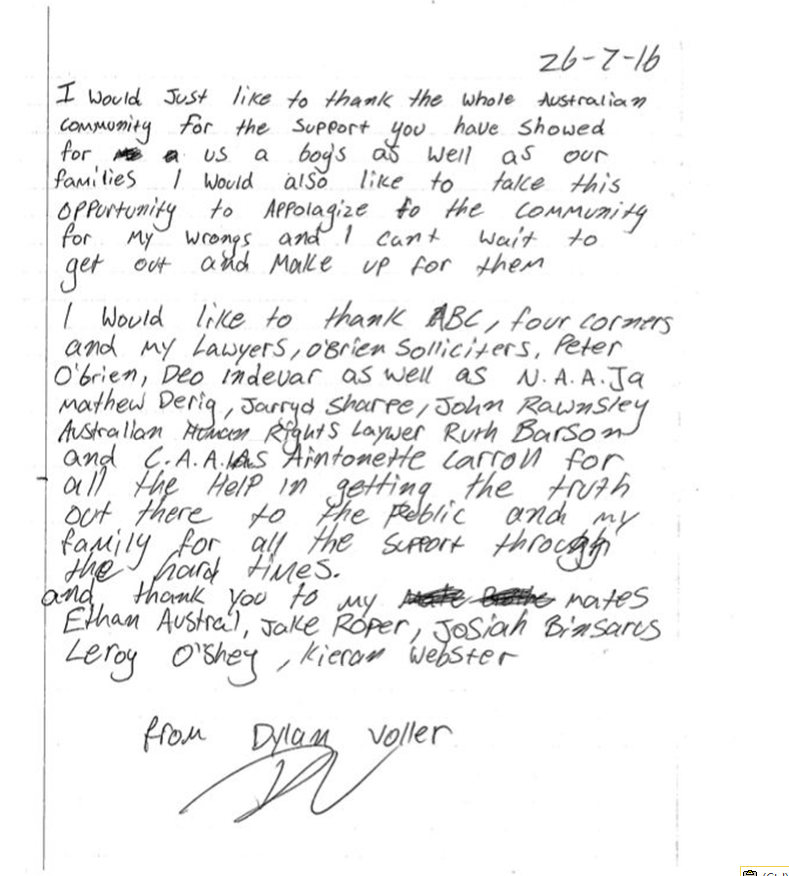 26-7-16
I would Just like to thank the whole Australian
community for the support you have showed
for us a boys as well as our
families I would also like to take this
opportunity to Appolagize to the community
for My wrongs and I cant wait to
get out and Make up for them
I would like to thank ABC, four corners
and my Lawyers, O'Brien Solliciters, Peter
O'brien, Deo Indevar as well as N.A.A.Ja
Mathew Derig, Jarryd Sharpe, John Rawnsley
Australian Human Rights Laywer Ruth Barson
and C.A.A.L.A.S Antonette Carroll for
all the Help in getting the truth
out there to the Peblic and my
family for all the support through
the hard times.
and thank you to my mates
Ethan Austral, Jake Roper, Josiah Binsarus
Leroy O'Shey, Kieran Webster
from Dylan Voller